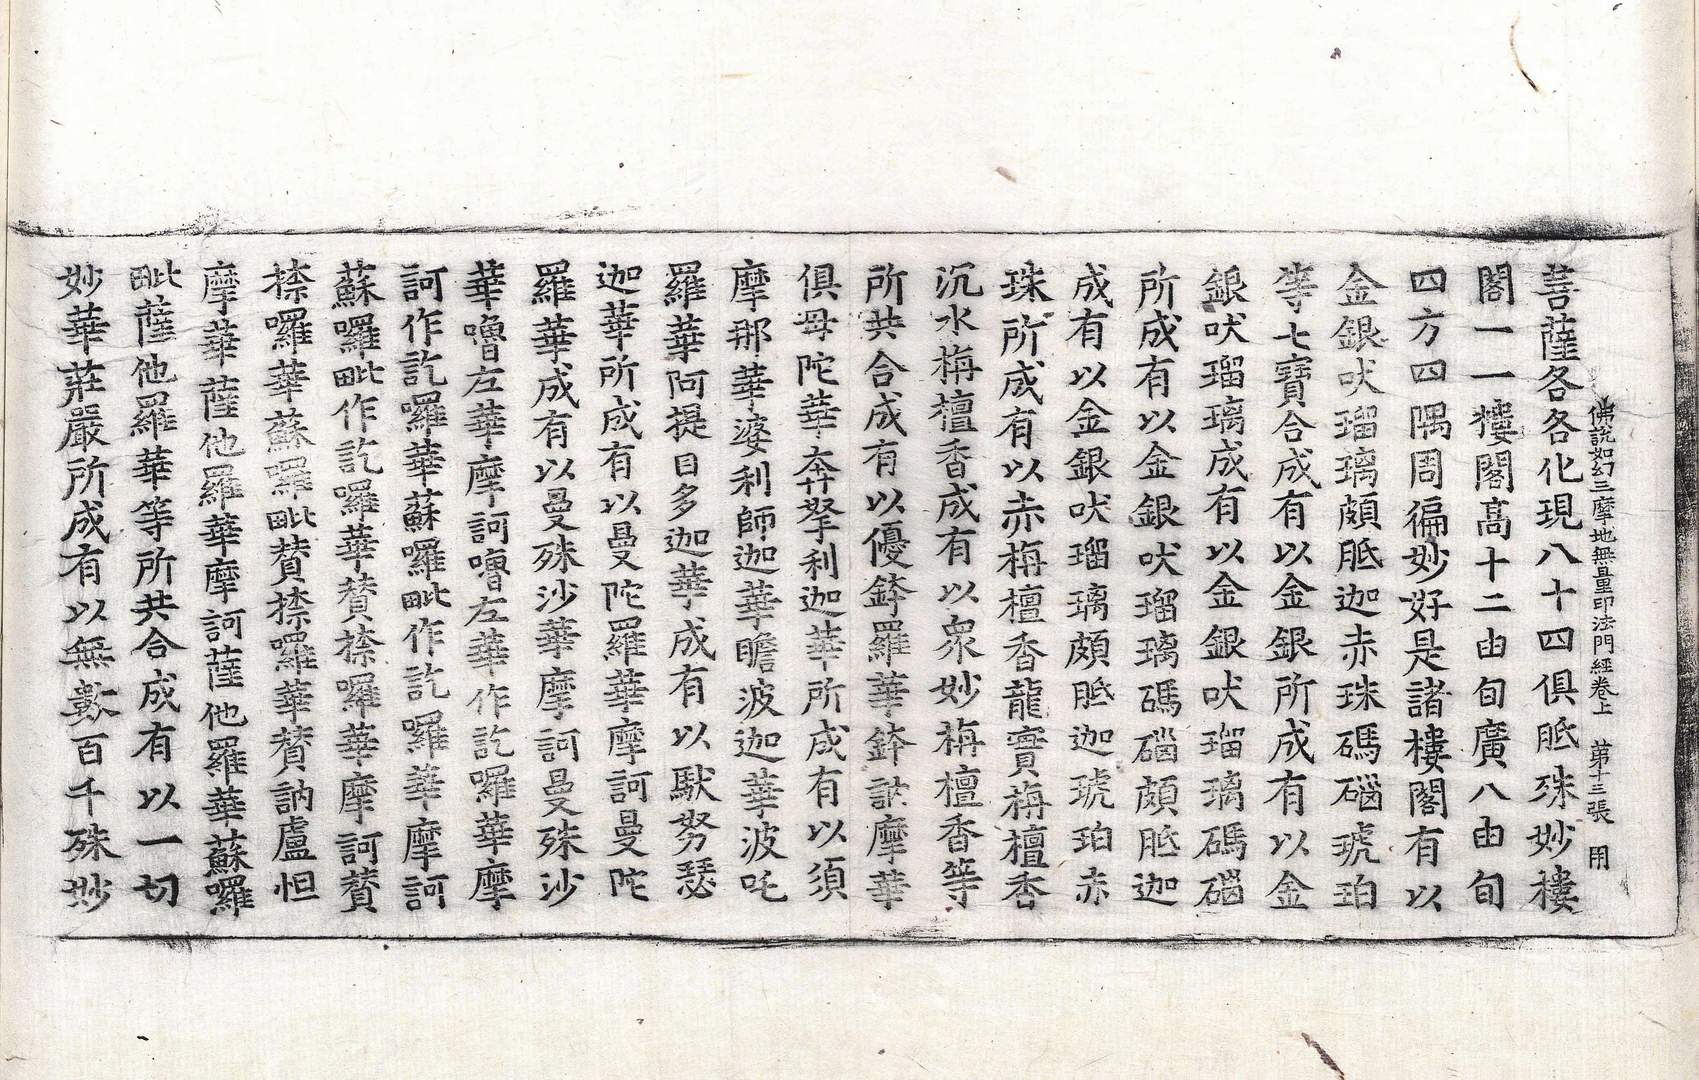 佛說如幻三摩地無量印法門經卷上　第十三張　用
菩薩各各化現八十四俱胝殊妙樓
閣一一樓閣高十二由旬廣八由旬
四方四隅周徧妙好是諸樓閣有以
金銀吠瑠璃頗胝迦赤珠碼碯琥珀
等七寶合成有以金銀所成有以金
銀吠瑠璃成有以金銀吠瑠璃碼碯
所成有以金銀吠瑠璃碼碯頗胝迦
成有以金銀吠瑠璃頗胝迦琥珀赤
珠所成有以赤栴檀香龍實栴檀香
沉水栴檀香成有以衆妙栴檀香等
所共合成有以優鉢羅華鉢訥摩華
俱母陀華奔拏利迦華所成有以須
摩那華婆利師迦華瞻波迦華波吒
羅華阿提目多迦華成有以馱努瑟
迦華所成有以曼陀羅華摩訶曼陀
羅華成有以曼殊沙華摩訶曼殊沙
華嚕左華摩訶嚕左華作訖囉華摩
訶作訖囉華蘇囉毗作訖囉華摩訶
蘇囉毗作訖囉華賛捺囉華摩訶賛
捺囉華蘇囉毗賛捺囉華賛訥盧怛
摩華薩他羅華摩訶薩他羅華蘇囉
毗薩他羅華等所共合成有以一切
妙華莊嚴所成有以無數百千殊妙